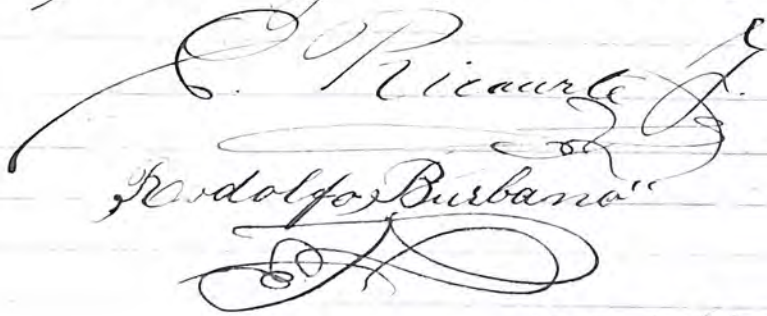 C. Ricaurte J.
„Rodolfo Burbano“